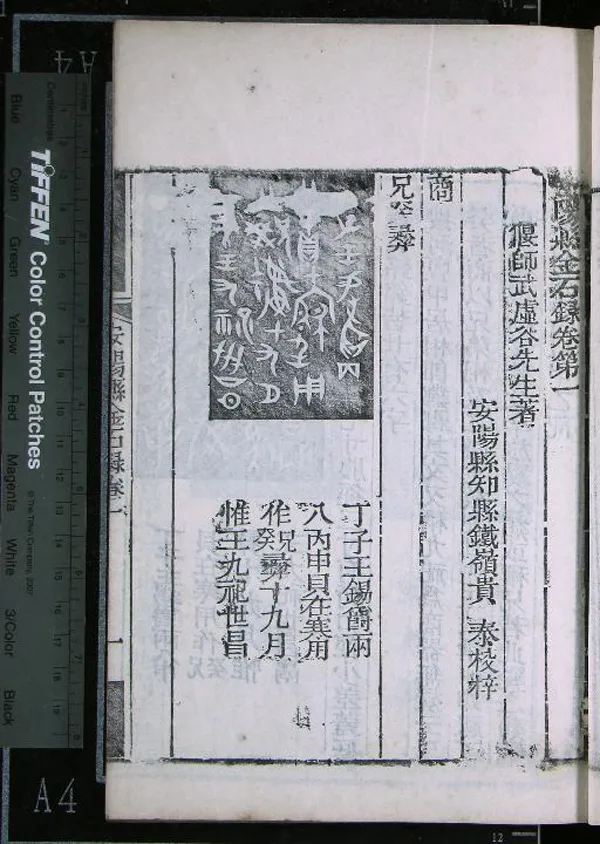 陽縣金石錄卷第一
偃師武虛谷先生著
安陽縣知縣鐵嶺貴 泰校梓
商
兄癸彝
丁子王錫爵兩
八丙申貝在寒用
作兄癸彝十九月
惟王九祀世昌
安陽縣金石錄卷一
一
TIFFEN Color Control Patches
© The Tiffen Company, 2007
Centimetres
Blue Cyan Green Yellow Red Magenta White 3/Color Black
A4
A4
12